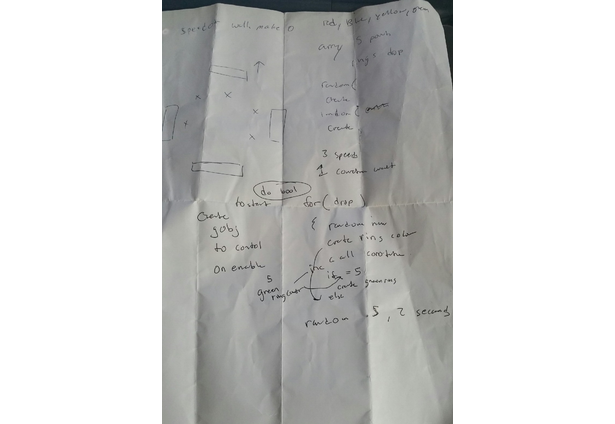 with make 0
red, blue, yellow, green
array 5 points
rings drop
random(
create
random(
create
3 speeds
1 constant
do bool
to start for( drop)
Create
gobj
to control
On enable
{ random num
create ring color
call
inc
if = 5
create green ring
else
5
green
ring counter
random .5, 2 seconds